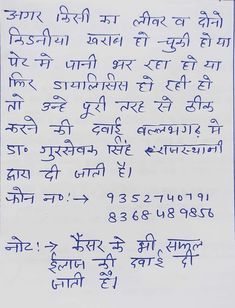 अगर किसी का लीवर व दोनो
किडनीया खराब हो चुकी हो या
पेट मे पानी भर रहा हो या
फिर डायलिसिस हो रही हो
तो उन्हे पूरी तरह से ठीक
करने की दवाई वल्लभगढ़ मे
डा० गुरसेवक सिंह राजस्थानी
द्वारा दी जाती है।
फोन न०:→ 9352740791
8368489856
नोट:→ कैंसर के भी सफल
ईलाज की दवाई दी
जाती है।